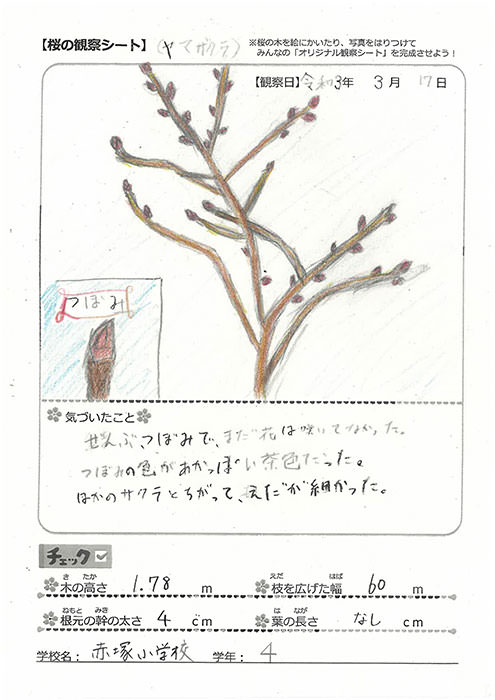 【桜の観察シート】(ヤマザクラ)
※桜の木を絵にかいたり、写真をはりつけて
みんなの「オリジナル観察シート」を完成させよう!
【観察日】令和3年 3月 17日
つぼみ
気づいたこと
ぜんぶ、つぼみで、まだ花は咲いてなかった。
つぼみの色があかっぽい茶色だった。
ほかのサクラとちがって、えだが細かった。
チェック
木の高さ 1.78 m
枝を広げた幅 60 m
根元の幹の太さ 4 cm
葉の長さ なし cm
学校名: 赤塚小学校 学年: 4